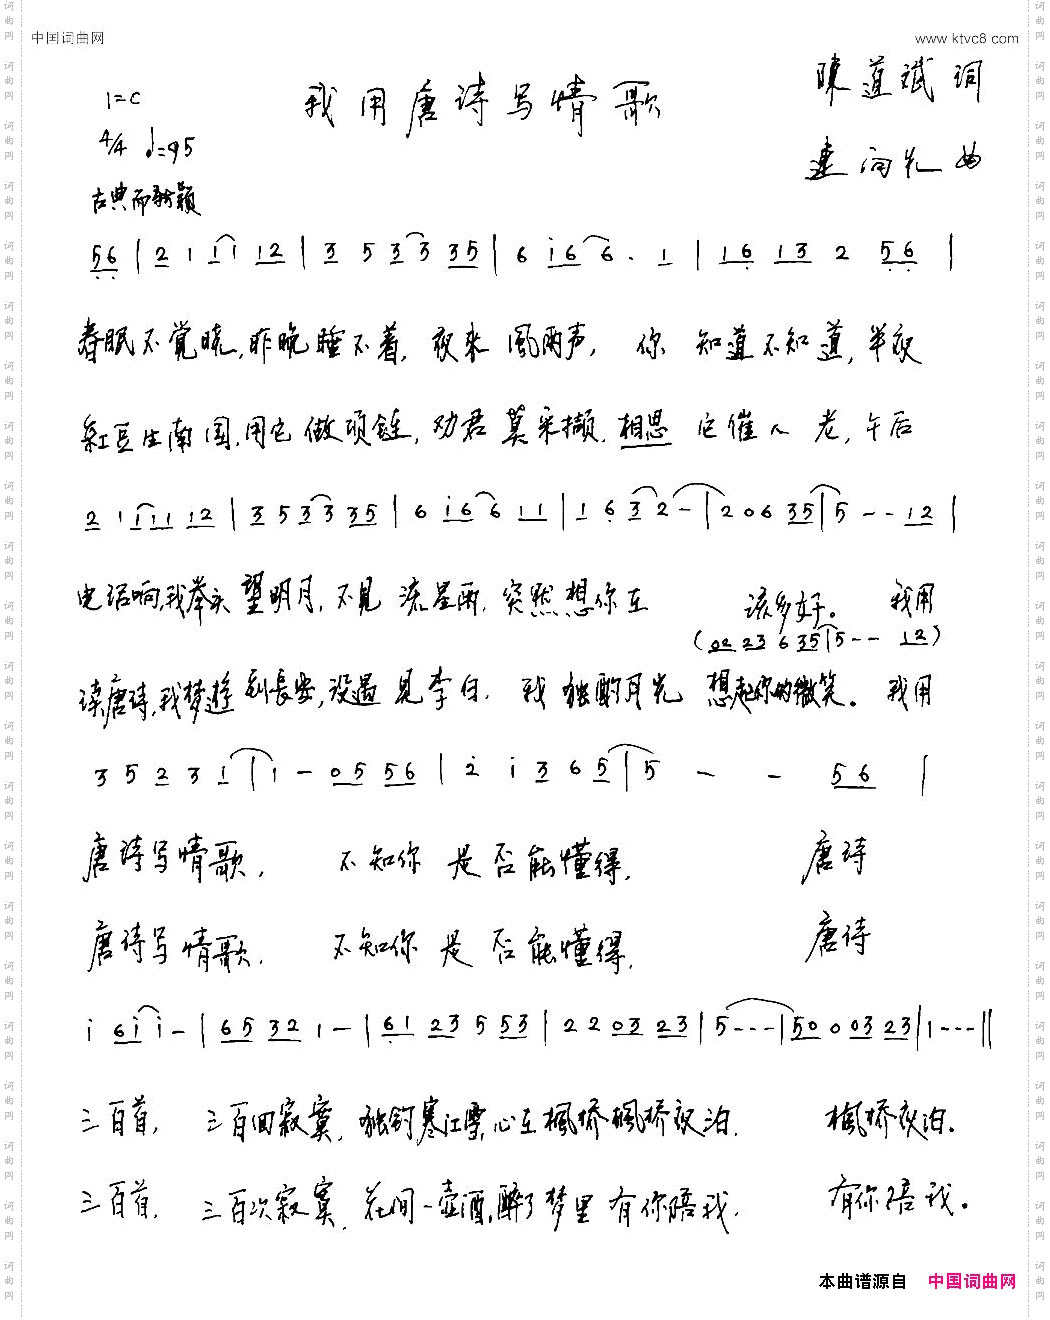 中国词曲网
www.ktvc8.com
1=C
我用唐诗写情歌
陳道斌 词
4/4 ♩=95
連向先 曲
古典而新颖
56 | 2 1 1 i 12 | 3 5 3 3 35 | 6 i 6 6 . 1 | 16 13 2 56 |
春眠不覚晓,昨晚睡不着, 夜来風雨声, 你 知道不知道,半夜
紅豆生南国,用它做项链, 劝君莫采撷, 相思 它催人老,午后
2 1 1 1 1 12 | 3 5 3 3 35 | 6 i 6 6 1 1 | 1 6 3 2 - | 2 0 6 35 | 5 - - 12 |
电话响,我举头望明月,不見流星雨,突然想你在 该多好。 我用
(02 23 6 35 | 5 - - 12)
读唐诗,我梦遊到長安,没遇見李白. 我独酌月光 想起你的微笑。 我用
3 5 2 3 1 | 1 - 05 56 | 2 i 3 6 5 | 5 - - 56 |
唐诗写情歌, 不知你是否能懂得, 唐诗
唐诗写情歌. 不知你是否能懂得, 唐诗
i 6 i i - | 65 32 1 - | 61 23 5 53 | 2 2 03 23 | 5 - - - | 50 0 03 23 | 1 - - - ||
三百首, 三百回寂寞, 独钓寒江雪,心在楓桥楓桥夜泊. 楓桥夜泊.
三百首, 三百次寂寞, 花间一壶酒,醉了梦里有你陪我. 有你陪我。
本曲谱源自 中国词曲网